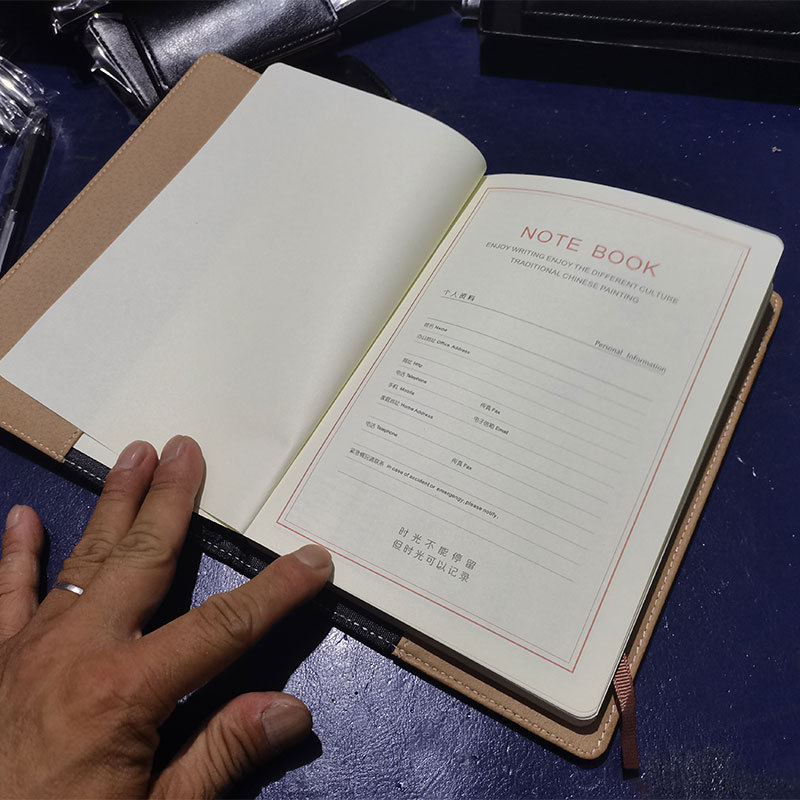 NOTE BOOK
ENJOY WRITING ENJOY THE DIFFERENT CULTURE
TRADITIONAL CHINESE PAINTING
个人资料
Personal Information
姓名 Name
办公地址 Office Address
网址 Http
电话 Telephone
传真 Fax
手机 Mobile
电子信箱 Email
家庭地址 Home Address
电话 Telephone
传真 Fax
in case of accident or emergency, please notify.
时光不能停留
但时光可以记录